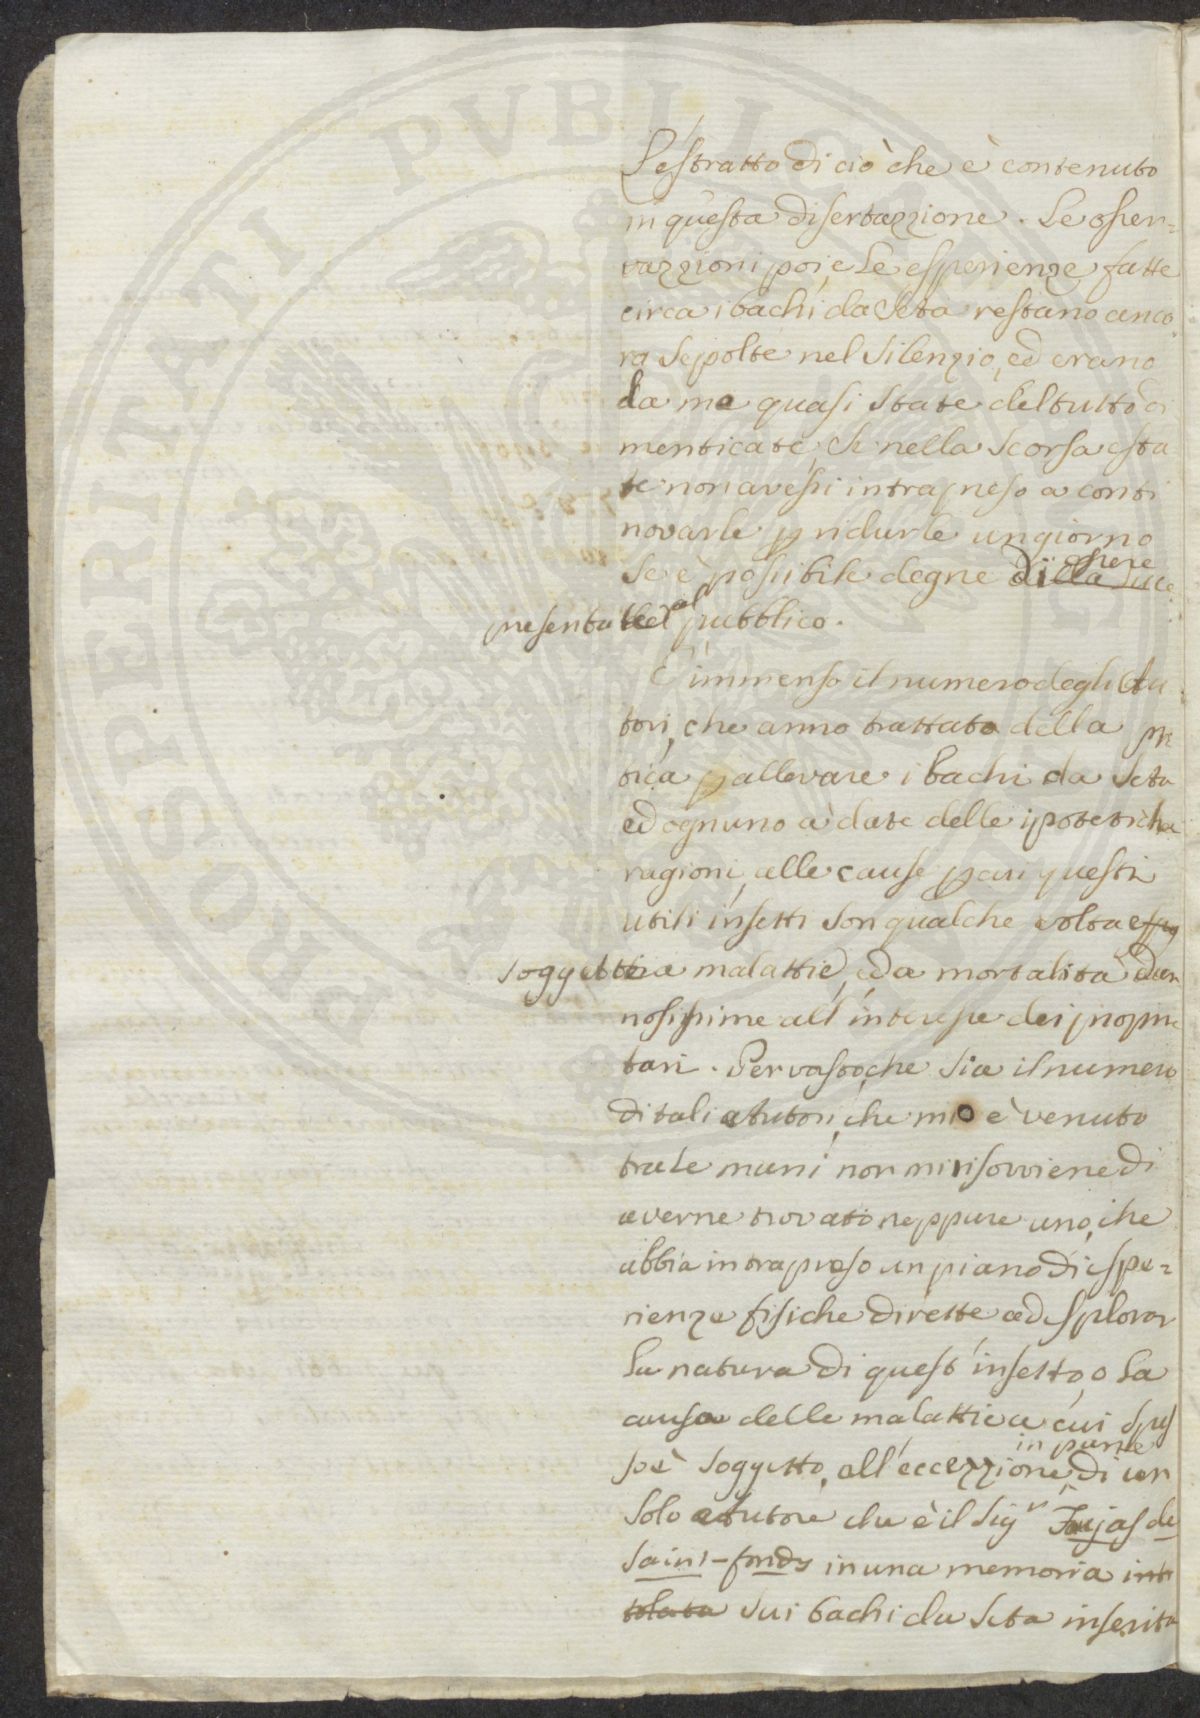 L'estratto di ciò che è contenuto
in questa disertazzione. Le osser=
vazzioni poi, e le esperienze fatte
circa i bachi da seta restano anco
ra sepolte nel silenzio, ed erano
da me quasi state del tutto di
menticate, se nella scorsa esta
te non avessi intrapreso a conti
novarle p ridurle un giorno
se è possibile degne di essere della luce
presentate al pubblico.
È immenso il numero degli Au
tori, che anno trattato della pra
tica p allevare i bachi da seta
ed ognuno à date delle ipotetiche
ragioni, alle cause p cui questi
utili insetti son qualche volta
soggetti a malattie, ed a mortalità dan
nosissime all'interesse dei proprie
tari. Per vasto, che sia il numero
di tali Autori, che mi è venuto
tra le mani non mi risovviene di
averne trovato neppure uno, che
abbia intrapreso un piano di espe=
rienze fisiche dirette ad esplorar
la natura di quest'insetto, o la
causa delle malattie a cui spes
so è soggetto, all'eccezzione, in parte di un
solo Autore che è il Sigr Faujas de
Saint-fonds in una memoria inti
tolata sui bachi da seta inserita
PROSPERITATI PVBLICAE